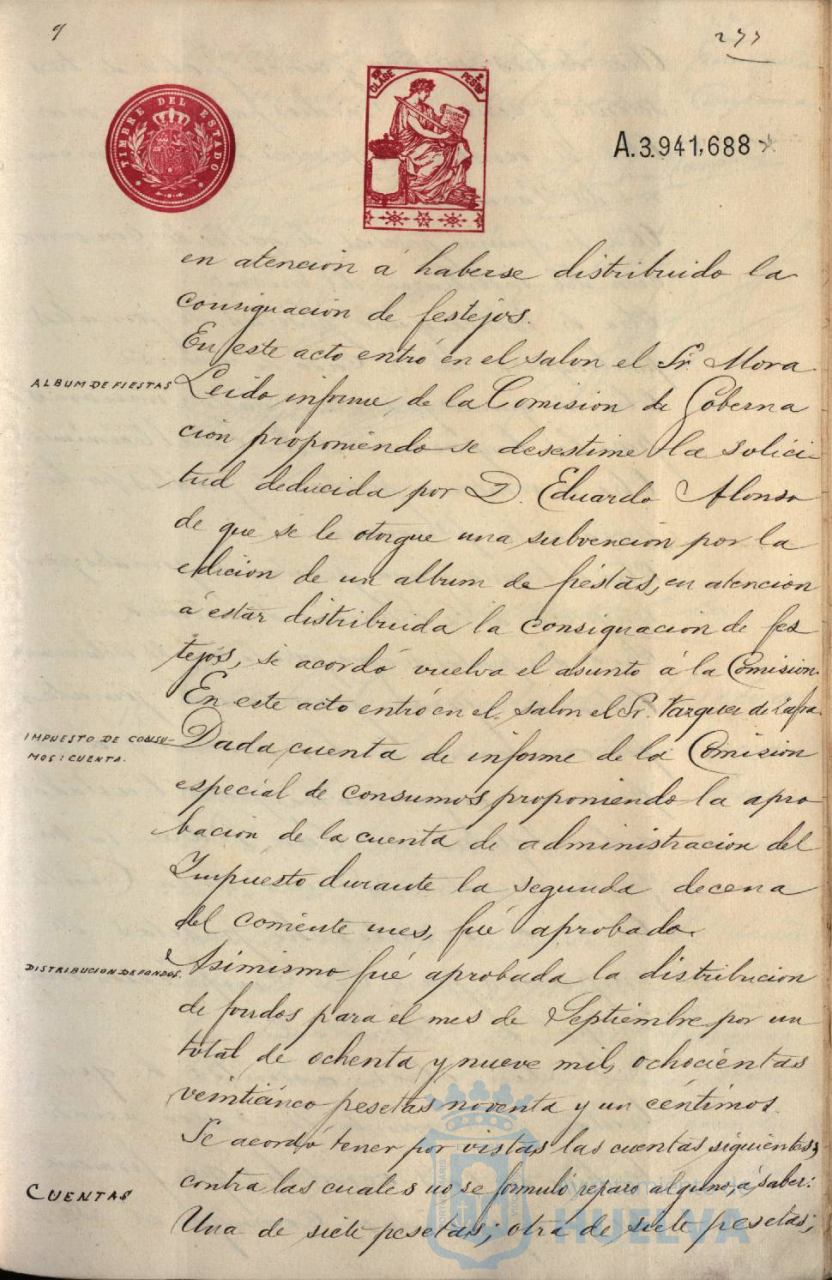 9
277
TIMBRE DEL ESTADO
CLASE
PESETAS
A.3.941,688
en atencion á haberse distribuido la
consignación de festejos.
En este acto entró en el salon el Sr. Mora.
ALBUM DE FIESTAS
Leido informe de la Comision de Goberna
ción proponiendo se desestime la solici-
tud deducida por D. Eduardo Alonso
de que se le otorgue una subvención por la
edicion de un album de fiestas, en atencion
á estar distribuida la consignacion de fes
tejos, se acordó vuelva el asunto á la Comision.
En este acto entró en el salon el Sr. Vazquez de Zafra.
IMPUESTO DE CONSU-
MOS: CUENTA.
Dada cuenta de informe de la Comision
especial de consumos proponiendo la apro
bacion de la cuenta de administracion del
Impuesto durante la segunda decena
del corriente mes, fué aprobado.
DISTRIBUCION DE FONDOS.
Asimismo fué aprobada la distribucion
de fondos para el mes de Septiembre por un
total de ochenta y nueve mil, ochocientas
veinticinco pesetas noventa y un céntimos.
Se acordó tener por vistas las cuentas siguientes,
CUENTAS
contra las cuales no se formuló reparo alguno, á saber:
Una de siete pesetas; otra de siete pesetas;
Ayuntamiento de
HUELVA